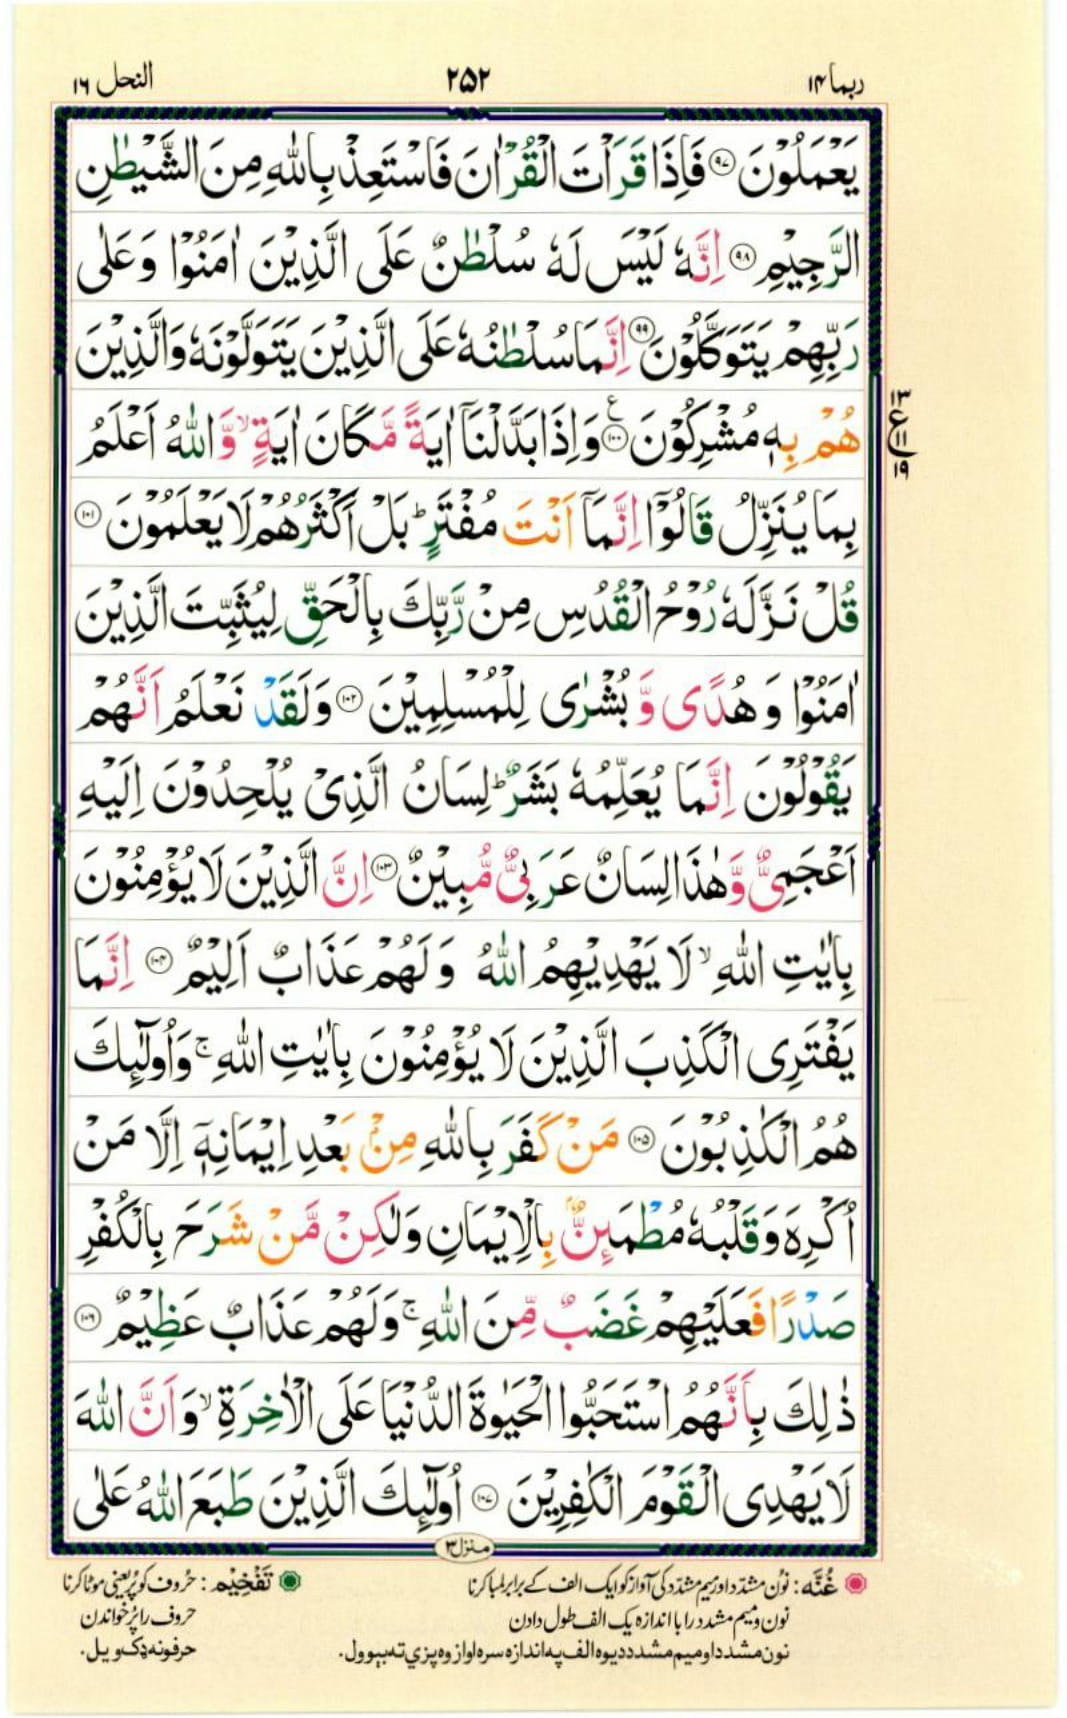 ربما ١۴ ٢۵٢ النحل ١٦
يَعْمَلُوْنَ ﴿۹۷﴾ فَاِذَا قَرَاْتَ الْقُرْاٰنَ فَاسْتَعِذْ بِاللّٰهِ مِنَ الشَّيْطٰنِ
الرَّجِيْمِ ﴿۹۸﴾ اِنَّهٗ لَيْسَ لَهٗ سُلْطٰنٌ عَلَى الَّذِيْنَ اٰمَنُوْا وَعَلٰى
رَبِّهِمْ يَتَوَكَّلُوْنَ ﴿۹۹﴾ اِنَّمَا سُلْطٰنُهٗ عَلَى الَّذِيْنَ يَتَوَلَّوْنَهٗ وَالَّذِيْنَ
هُمْ بِهٖ مُشْرِكُوْنَ ﴿۱۰۰﴾ؑ وَاِذَا بَدَّلْنَاۤ اٰيَةً مَّكَانَ اٰيَةٍ ۙ وَّاللّٰهُ اَعْلَمُ
١٣
ع
١١
١٩
بِمَا يُنَزِّلُ قَالُوْۤا اِنَّمَاۤ اَنْتَ مُفْتَرٍ ؕ بَلْ اَكْثَرُهُمْ لَا يَعْلَمُوْنَ ﴿۱۰۱﴾
قُلْ نَزَّلَهٗ رُوْحُ الْقُدُسِ مِنْ رَّبِّكَ بِالْحَقِّ لِيُثَبِّتَ الَّذِيْنَ
اٰمَنُوْا وَهُدًى وَّبُشْرٰى لِلْمُسْلِمِيْنَ ﴿۱۰۲﴾ وَلَقَدْ نَعْلَمُ اَنَّهُمْ
يَقُوْلُوْنَ اِنَّمَا يُعَلِّمُهٗ بَشَرٌ ؕ لِسَانُ الَّذِيْ يُلْحِدُوْنَ اِلَيْهِ
اَعْجَمِيٌّ وَّهٰذَا لِسَانٌ عَرَبِيٌّ مُّبِيْنٌ ﴿۱۰۳﴾ اِنَّ الَّذِيْنَ لَا يُؤْمِنُوْنَ
بِاٰيٰتِ اللّٰهِ ۙ لَا يَهْدِيْهِمُ اللّٰهُ وَلَهُمْ عَذَابٌ اَلِيْمٌ ﴿۱۰۴﴾ اِنَّمَا
يَفْتَرِى الْكَذِبَ الَّذِيْنَ لَا يُؤْمِنُوْنَ بِاٰيٰتِ اللّٰهِ ۚ وَاُولٰٓئِكَ
هُمُ الْكٰذِبُوْنَ ﴿۱۰۵﴾ مَنْ كَفَرَ بِاللّٰهِ مِنْۢ بَعْدِ اِيْمَانِهٖۤ اِلَّا مَنْ
اُكْرِهَ وَقَلْبُهٗ مُطْمَئِنٌّۢ بِالْاِيْمَانِ وَلٰكِنْ مَّنْ شَرَحَ بِالْكُفْرِ
صَدْرًا فَعَلَيْهِمْ غَضَبٌ مِّنَ اللّٰهِ ۚ وَلَهُمْ عَذَابٌ عَظِيْمٌ ﴿۱۰۶﴾
ذٰلِكَ بِاَنَّهُمُ اسْتَحَبُّوا الْحَيٰوةَ الدُّنْيَا عَلَى الْاٰخِرَةِ ۙ وَاَنَّ اللّٰهَ
لَا يَهْدِى الْقَوْمَ الْكٰفِرِيْنَ ﴿۱۰۷﴾ اُولٰٓئِكَ الَّذِيْنَ طَبَعَ اللّٰهُ عَلٰى
منزل٣
غُنَّه : نون مشدد اور میم مشدد کی آواز کو ایک الف کے برابر لمبا کرنا
نون و میم مشدد را با اندازه یک الف طول دادن
نون مشدد او میم مشدد د یوه الف په اندازه سره اواز وه پزي ته بيوول.
تَفْخِيْم : حُروف کو پُر یعنی موٹا کرنا
حروف را پُر خواندن
حرفونه ډک ویل.